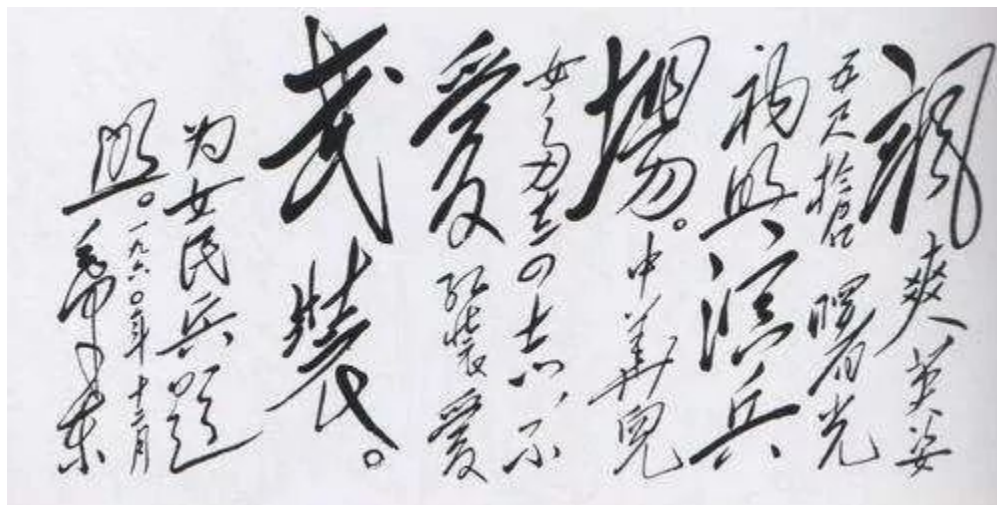 颯爽英姿
五尺枪曙光
初照演兵
場。中華兒
女多奇志不
愛红装愛
武裝。
为女民兵题
照。一九六〇年十二月
毛泽东